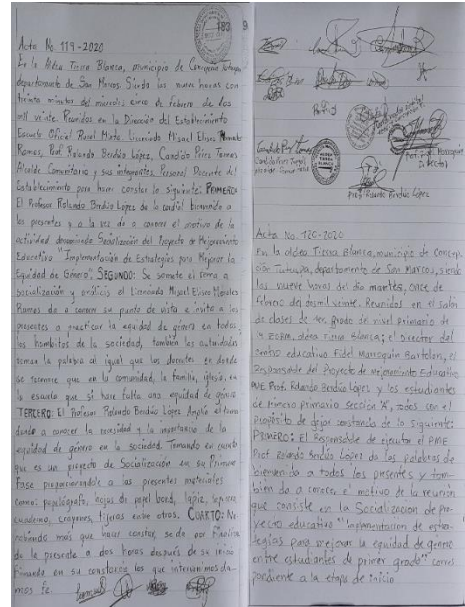 183
Acta No. 119-2020
En la Aldea Tierra Blanca, municipio de Concepción Tutuapa,
departamento de San Marcos. Siendo las nueve horas con
treinta minutos del miercoles cinco de febrero de dos
mil veinte. Reunidos en la Dirección del Establecimiento
Escuela Oficial Rural Mixta. Licenciado Misael Eliseo
Ramos, Prof. Rolando Berdúo López, Candido Pérez
Alcalde Comunitario y sus integrantes, Personal Docente del
Establecimiento para hacer constar lo siguiente: PRIMERO:
El Profesor Rolando Berdúo López da la cordial bienvenida a
los presentes y a la vez da a conocer el motivo de la
actividad denominada Socialización del Proyecto de Mejoramiento
Educativo "Implementación de Estrategias para Mejorar la
Equidad de Género". SEGUNDO: Se somete el tema a
socialización y análisis el Licenciado Misael Eliseo Morales
Ramos da a conocer su punto de vista e invita a los
presentes a practicar la equidad de género en todos
los hambitos de la sociedad, también las autoridades
toman la palabra al igual que los docentes en donde
se que en la comunidad, la familia, iglesia, en
la escuela que si hace falta una equidad de género
TERCERO: El Profesor Rolando Berdúo López Amplia el tema
dando a conocer la necesidad y la importancia de la
equidad de género en la sociedad. Tomando en cuenta
que es un proyecto de Socialización en su Primera
Fase proporcionandole a los presentes materiales
como: papelógrafo, hojas de papel bond, lápiz,
cuaderno, crayones, tijeras entre otros. CUARTO: No
habiendo más que hacer constar, se da por finalizada
la presente a dos horas después de su inicio
Firmando en su constancia los que intervenimos da-
mos fe.
Prof. Rolando Berdúo López
Acta No. 120-2020
En la aldea Tierra Blanca, municipio de Concep-
ción Tutuapa, departamento de San Marcos, siendo
las nueve horas del día martes, once de
febrero del dosmil veinte. Reunidos en el salón
de clases de 1er. grado de nivel primario de
la EORM, aldea Tierra Blanca; el director del
centro educativo Fidel Marroquin Bartolon, el
Responsable del Proyecto de Mejoramiento Educativo
PME Prof. Rolando Berdúo López y los estudiantes
de Primero primario sección "A", todos con el
Propósito de dejar constancia de lo siguiente:
PRIMERO: El Responsable de ejecutar el PME
Prof. Rolando Berdúo López da las palabras de
bienvenida a todos los presentes y tam-
bién da a conocer el motivo de la reunión
que consiste en la Socialización de Pro-
yecto educativo "Implementación de estra-
tegias para mejorar la equidad de género
entre estudiantes de primer grado" corres
pondiente a la etapa de inicio